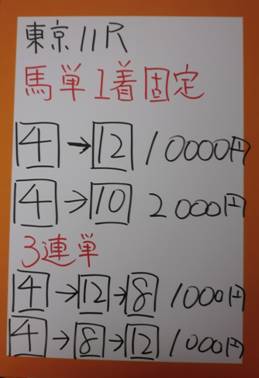 東京11R
馬単1着固定
4→12 10000円
4→10 2000円
3連単
4→12→8 1000円
4→8→12 1000円